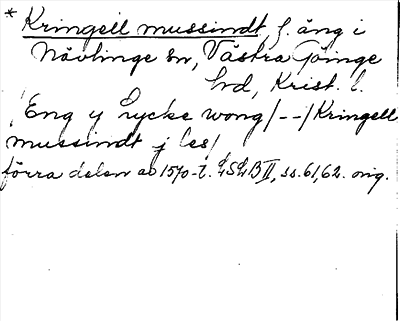 * Kringell mussindt f. äng i
Nävlinge sn, Västra Göinge
hd, Krist. l.
/Eng y Lycke wong /--/ Kringell
mussindt j les/
förra delen av 1570-t. LSLB II, ss. 61, 62. orig.